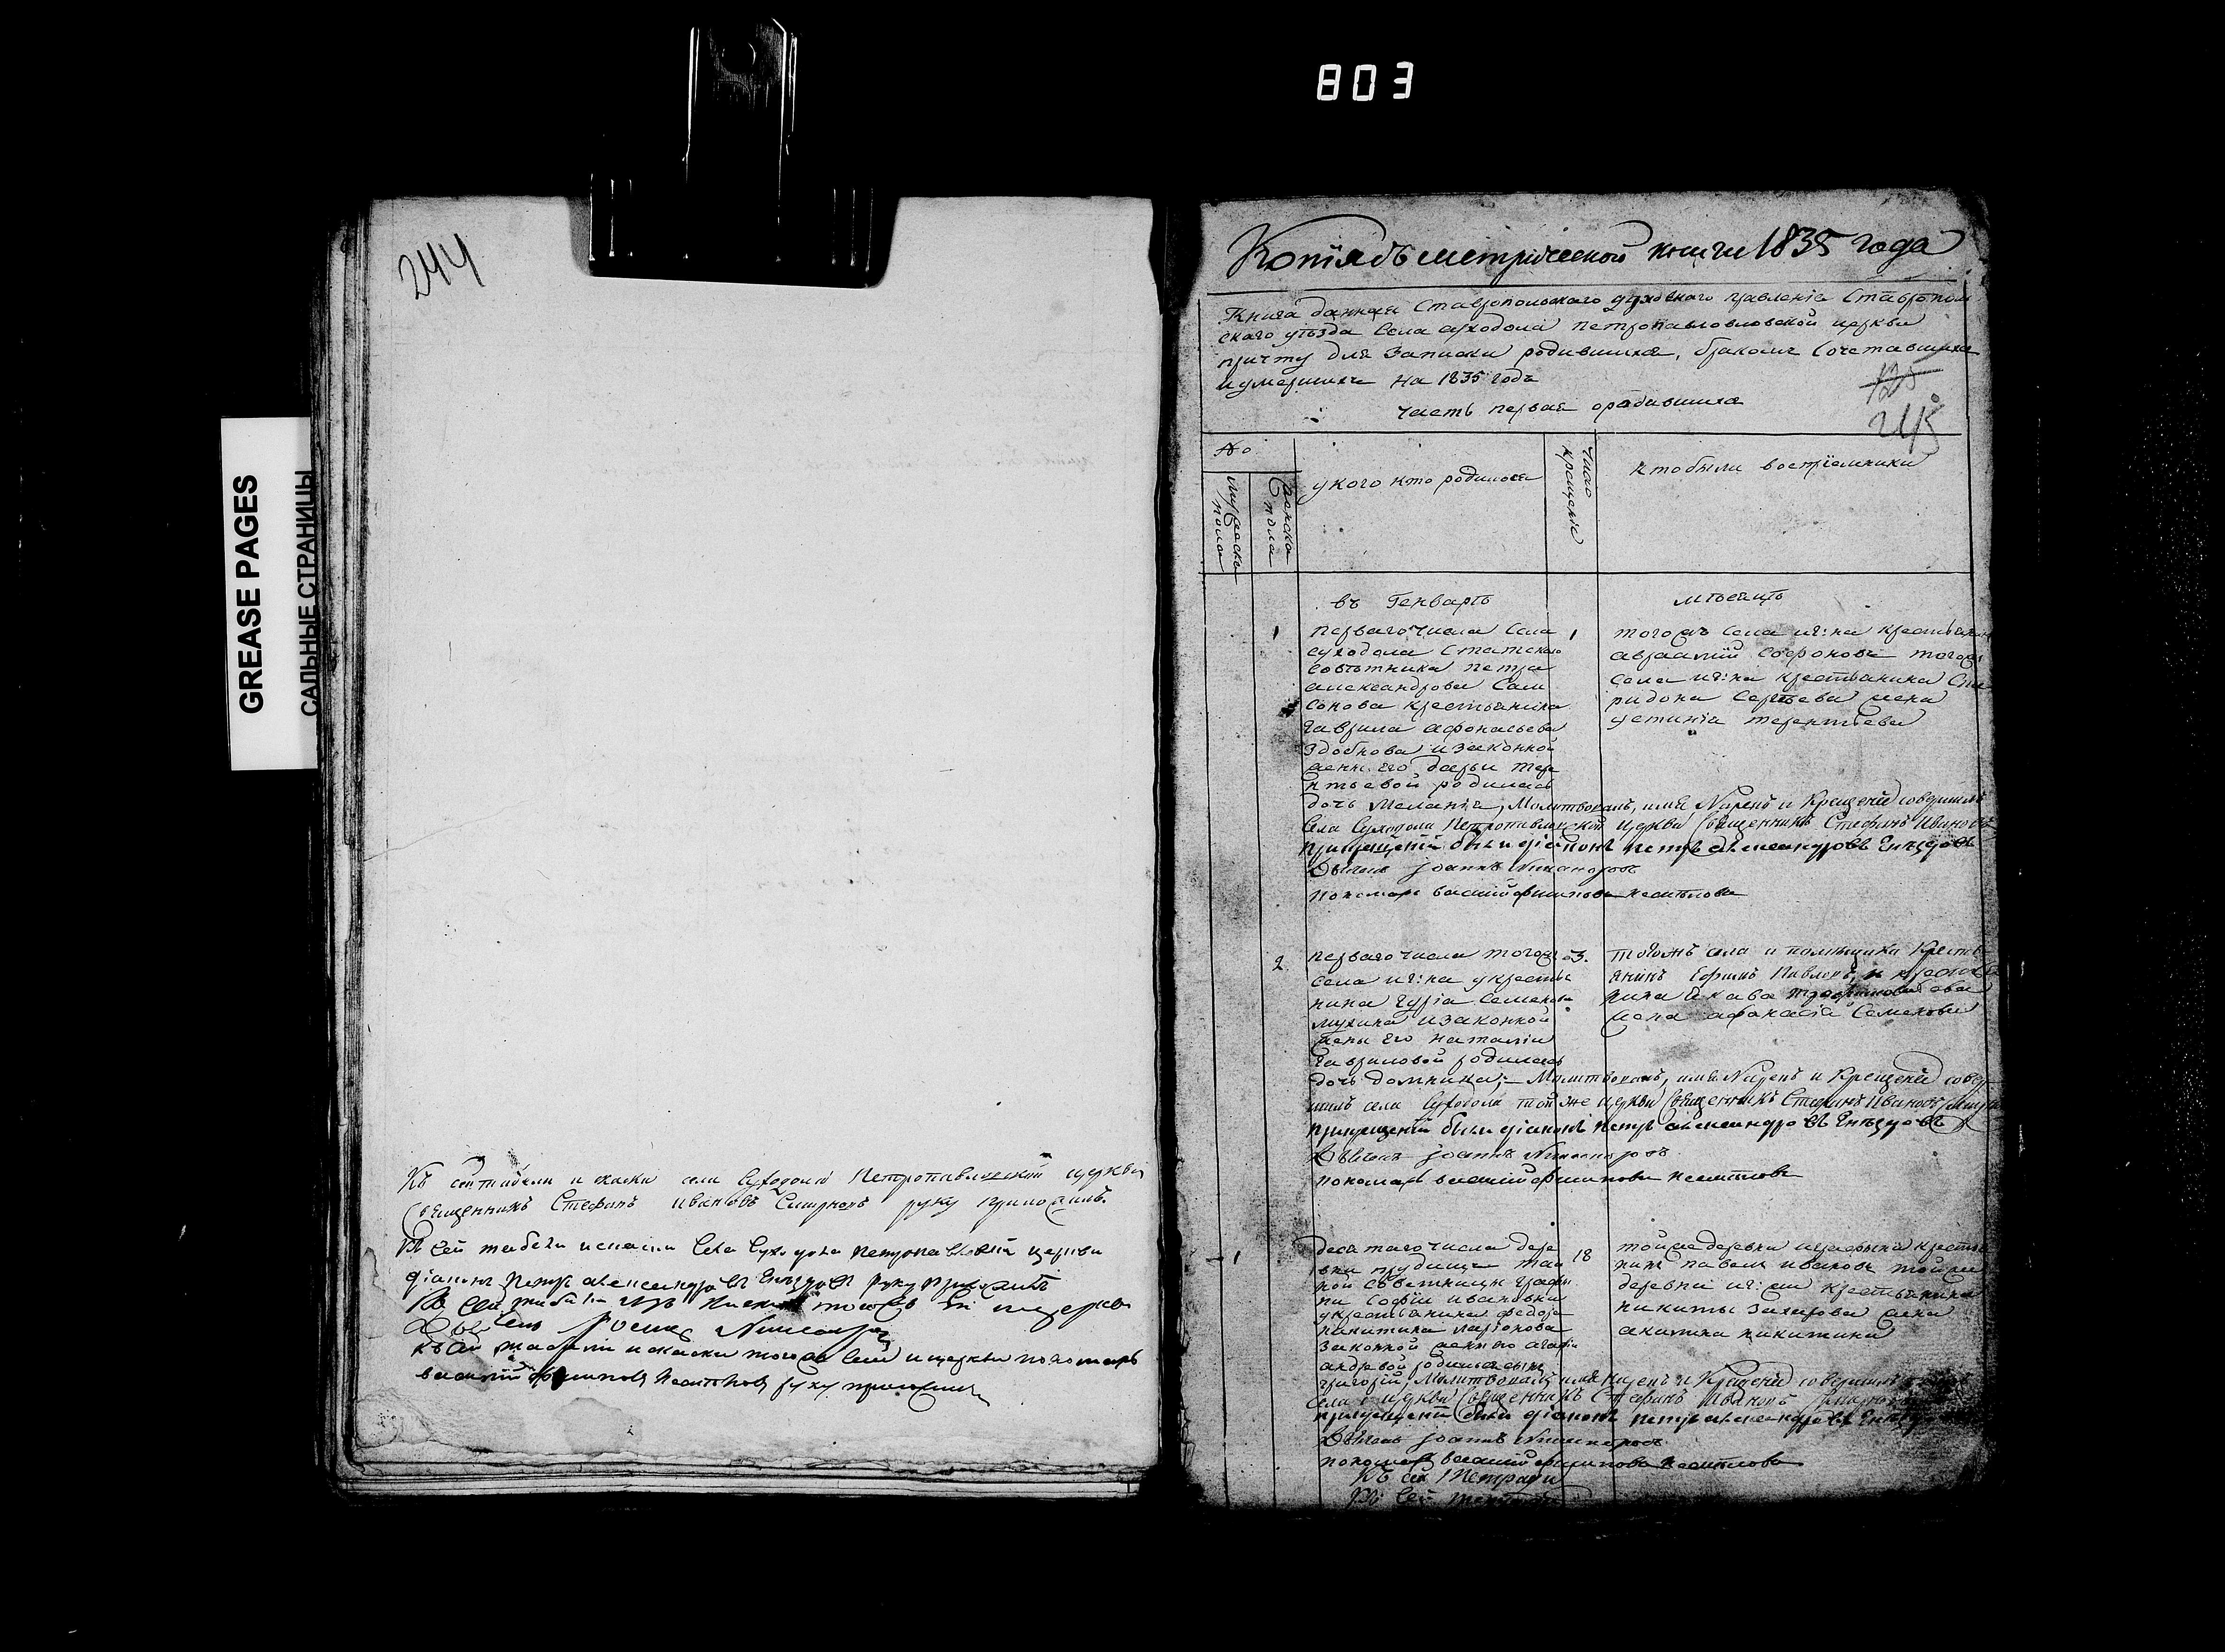 803
244
GREASE PAGES
САЛЬНЫЕ СТРАНИЦЫ
Къ сей табели и скаски села Суходола Петропавловской церкви
Священникъ Стефанъ Ивановъ Смирновъ руку приложилъ
Къ сей табели и скаски села Суходола Петропавловской церкви
діаконъ Петръ александровъ руку приложилъ
Къ сей табели
Къ сей табели и скаски того жъ села и церкви пономарь
василий филиповъ руку приложилъ
Копія съ метрической книги 1835 года
Книга данная Ставропольскаго духовнаго правленія Ставрополь
скаго уѣзда Села суходола петропавловловской церкви
причту для записки родившихся, бракомъ сочетавшихся
и умершихъ на 1835 годъ
125
245
часть первая о родившихся
№
мужеска пола
женска пола
у кого кто родился
число крещенія
кто были воспріемники
въ Генварѣ
мѣсяцѣ
1
перваго числа Села
суходола Статскаго
совѣтника петра
александрова Сам
сонова крестьянина
гаврила афонасьева
здобнова и законной
жены его дарьи тере
нтьевой родилась
дочь Меланія, Молитвовалъ, имя Нарекъ и Крещеніе совершилъ
Села Суходола Петропавловской Церкви Священникъ Стефанъ Ивановъ
При крещеніи были діаконъ петръ александровъ
Дьячекъ Іоаннъ Никаноровъ
пономарь василий филиповъ
1
того жъ села и г:на крестьянинъ
авраамій софоновъ того жъ
села и г:на крестьянина Спи
ридона Сергѣева жена
устинія терентьева
2
перваго числа того жъ
села и г:на у крестья
нина гурія семенова
мухина и законной
жены его наталіи
гавриловой родилась
дочь домника; Молитвовалъ, имя Нарекъ и Крещеніе совер
шилъ села Суходола той же церкви Священникъ Стефанъ Ивановъ
При крещеніи были діаконъ петръ александровъ
Дьячекъ Іоаннъ Никаноровъ
пономарь василий филиповъ
3.
тогожъ села и помѣщика Кресть
янинъ Ефимъ Павловъ, и крестья
нина Якова трофимова
жена афанасія Семенова
1
десятаго числа дере
вни прудищъ тай
ной совѣтницы графи
ни Софіи ивановны
у крестьянина федора
никитина ларіонова
законной жены его агафіи
андревой родился сынъ
григорій; Молитвовалъ имя Нарекъ и Крещеніе совершилъ
села и церкви Священникъ Стефанъ Ивановъ
При крещеніи были діаконъ петръ александровъ
Дьячекъ Іоаннъ Никаноровъ
пономарь василий филиповъ
Къ сей Метрики
Къ сей
18
той же деревни и графини кресть
нинъ павелъ ивановъ той же
деревни и г:жи крестьянина
никиты захарова жена
акилина никитина